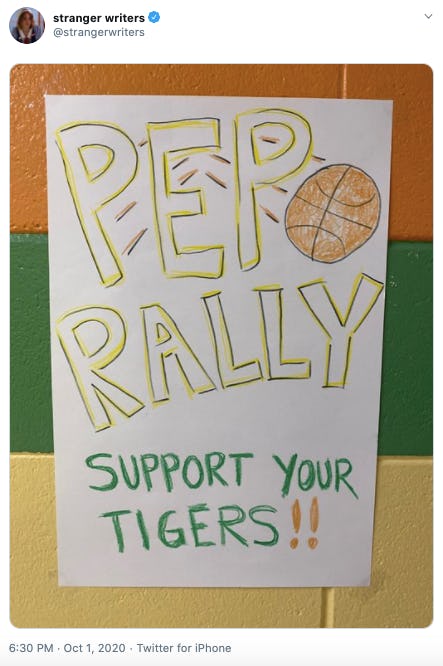 stranger writers
@strangerwriters
PEP
RALLY
SUPPORT YOUR
TIGERS!!
6:30 PM · Oct 1, 2020 · Twitter for iPhone